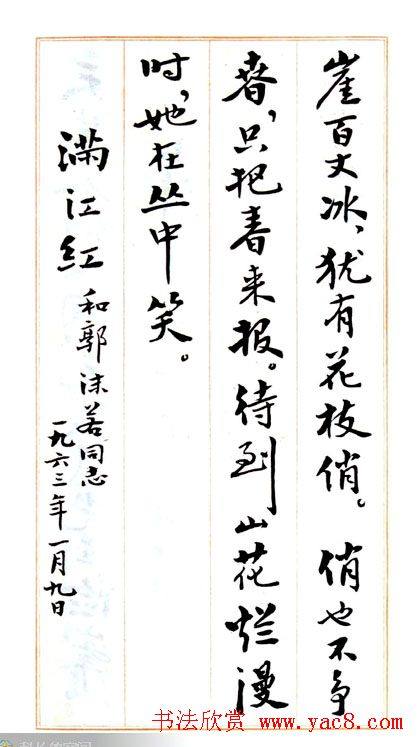 崖百丈冰，犹有花枝俏。 俏也不争
春，只把春来报。待到山花烂漫
时，她在丛中笑。
满江红 和郭沫若同志
一九六三年一月九日
书法欣赏 www.yac8.com